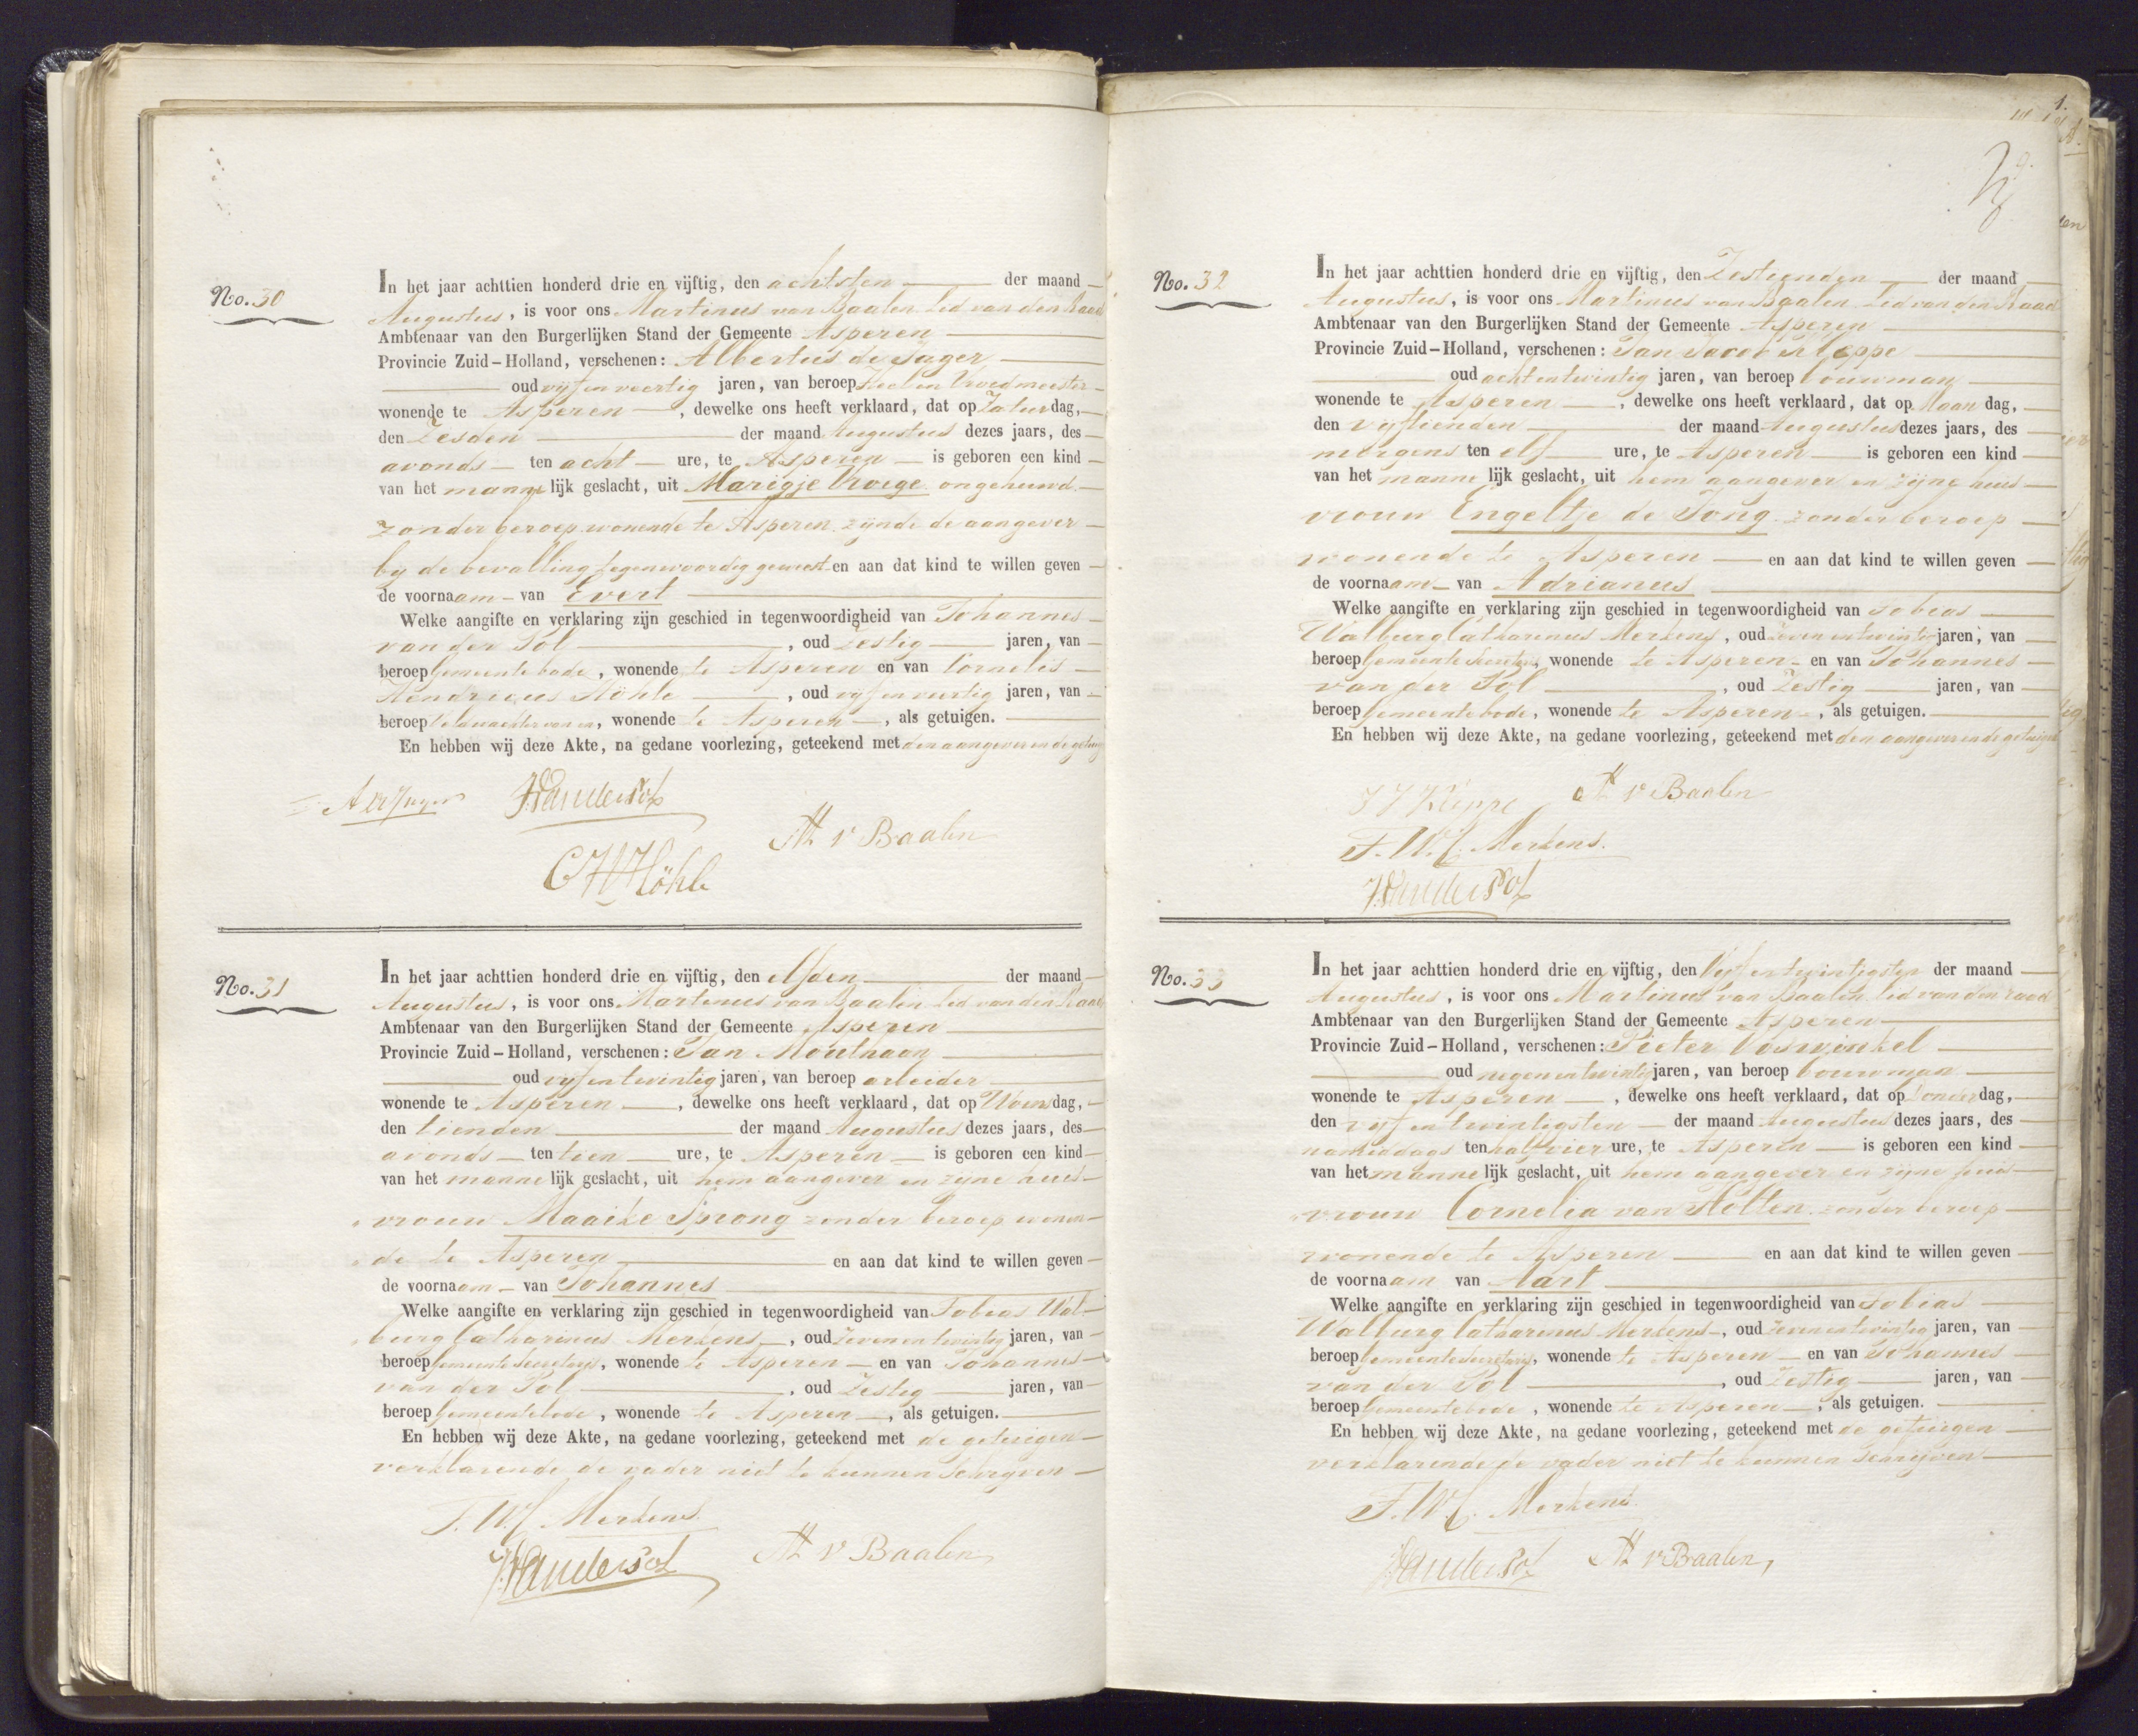 No. 30
In het jaar achttien honderd drie en vijftig, den achtsten der maand
Augustus, is voor ons Martinus van Baalen Lid van den Raad
Ambtenaar van den Burgerlijken Stand der Gemeente Asperen
Provincie Zuid-Holland, verschenen: Albertus de Jager
oud vijf en veertig jaren, van beroep Heel en Vroedmeester
wonende te Asperen, dewelke ons heeft verklaard, dat op Zaturdag,
den Zesden der maand Augustus dezes jaars, des
avonds ten acht ure, te Asperen is geboren een kind
van het mannelijk geslacht, uit Marigje Vroege ongehuwd
zonder beroep wonende te Asperen zijnde de aangever
bij de bevalling tegenwoordig geweest en aan dat kind te willen geven
de voornaam van Evert
Welke aangifte en verklaring zijn geschied in tegenwoordigheid van Johannes
van der Pol, oud Zestig jaren, van
beroep Gemeente bode, wonende te Asperen en van Cornelis
Hendricus Höhle, oud vijf en veertig jaren, van
beroep, wonende te Asperen, als getuigen.
En hebben wij deze Akte, na gedane voorlezing, geteekend met den aangever en de getuig
A de Jager JvanderPol
M v Baalen
C H Höhle
No. 31
In het jaar achttien honderd drie en vijftig, den elfden der maand
Augustus, is voor ons Martinus van Baalen Lid van den Raad
Ambtenaar van den Burgerlijken Stand der Gemeente Asperen
Provincie Zuid-Holland, verschenen: Jan Moulhaan
oud vijf en twintig jaren, van beroep arbeider
wonende te Asperen, dewelke ons heeft verklaard, dat op Woensdag,
den tienden der maand Augustus dezes jaars, des
avonds ten tien ure, te Asperen is geboren een kind
van het mannelijk geslacht, uit hem aangever en zijne huis
vrouw Maaike Sprong zonder beroep wonen
de te Asperen en aan dat kind te willen geven
de voornaam van Johannes
Welke aangifte en verklaring zijn geschied in tegenwoordigheid van Tobias Wal
burg Catharinus Merkens, oud Zeven en twintig jaren, van
beroep Gemeente Secretaris, wonende te Asperen en van Johannes
van der Pol, oud Zestig jaren, van
beroep Gemeentebode, wonende te Asperen, als getuigen.
En hebben wij deze Akte, na gedane voorlezing, geteekend met de getuigen
verklarende de vader niet te kunnen schrijven
T. W. C. Merkens.
JvanderPol M v Baalen
No. 32
In het jaar achttien honderd drie en vijftig, den Zestienden der maand
Augustus, is voor ons Martinus van Baalen Lid van den Raad
Ambtenaar van den Burgerlijken Stand der Gemeente Asperen
Provincie Zuid-Holland, verschenen: Jan Jacob Kleppe
oud acht en twintig jaren, van beroep bouwman
wonende te Asperen, dewelke ons heeft verklaard, dat op Maandag,
den vijftienden der maand Augustus dezes jaars, des
morgens ten elf ure, te Asperen is geboren een kind
van het mannelijk geslacht, uit hem aangever en zijne huis
vrouw Engeltje de Jong zonder beroep
wonende te Asperen en aan dat kind te willen geven
de voornaam van Adrianus
Welke aangifte en verklaring zijn geschied in tegenwoordigheid van Tobias
Walburg Catharinus Merkens, oud zeven en twintig jaren, van
beroep Gemeente Secretaris, wonende te Asperen en van Johannes
van der Pol, oud Zestig jaren, van
beroep Gemeentebode, wonende te Asperen, als getuigen.
En hebben wij deze Akte, na gedane voorlezing, geteekend met den aangever en de getuigen
J J Kleppe M v Baalen
T. W. C. Merkens.
JvanderPol
No. 33
In het jaar achttien honderd drie en vijftig, den Vijf en twintigsten der maand
Augustus, is voor ons Martinus van Baalen lid van den raad
Ambtenaar van den Burgerlijken Stand der Gemeente Asperen
Provincie Zuid-Holland, verschenen: Pieter Voswinkel
oud negen en twintig jaren, van beroep bouwman
wonende te Asperen, dewelke ons heeft verklaard, dat op Donderdag,
den vijf en twintigsten der maand Augustus dezes jaars, des
namiddags ten half vier ure, te Asperen is geboren een kind
van het mannelijk geslacht, uit hem aangever en zijne huis
vrouw Cornelia van Holten zonder beroep
wonende te Asperen en aan dat kind te willen geven
de voornaam van Aart
Welke aangifte en verklaring zijn geschied in tegenwoordigheid van Tobias
Walburg Catharinus Merkens, oud zeven en twintig jaren, van
beroep Gemeente Secretaris, wonende te Asperen en van Johannes
van der Pol, oud Zestig jaren, van
beroep Gemeentebode, wonende te Asperen, als getuigen.
En hebben wij deze Akte, na gedane voorlezing, geteekend met de getuigen
verklarende de vader niet te kunnen schrijven
T. W. C. Merkens
JvanderPol M v Baalen,